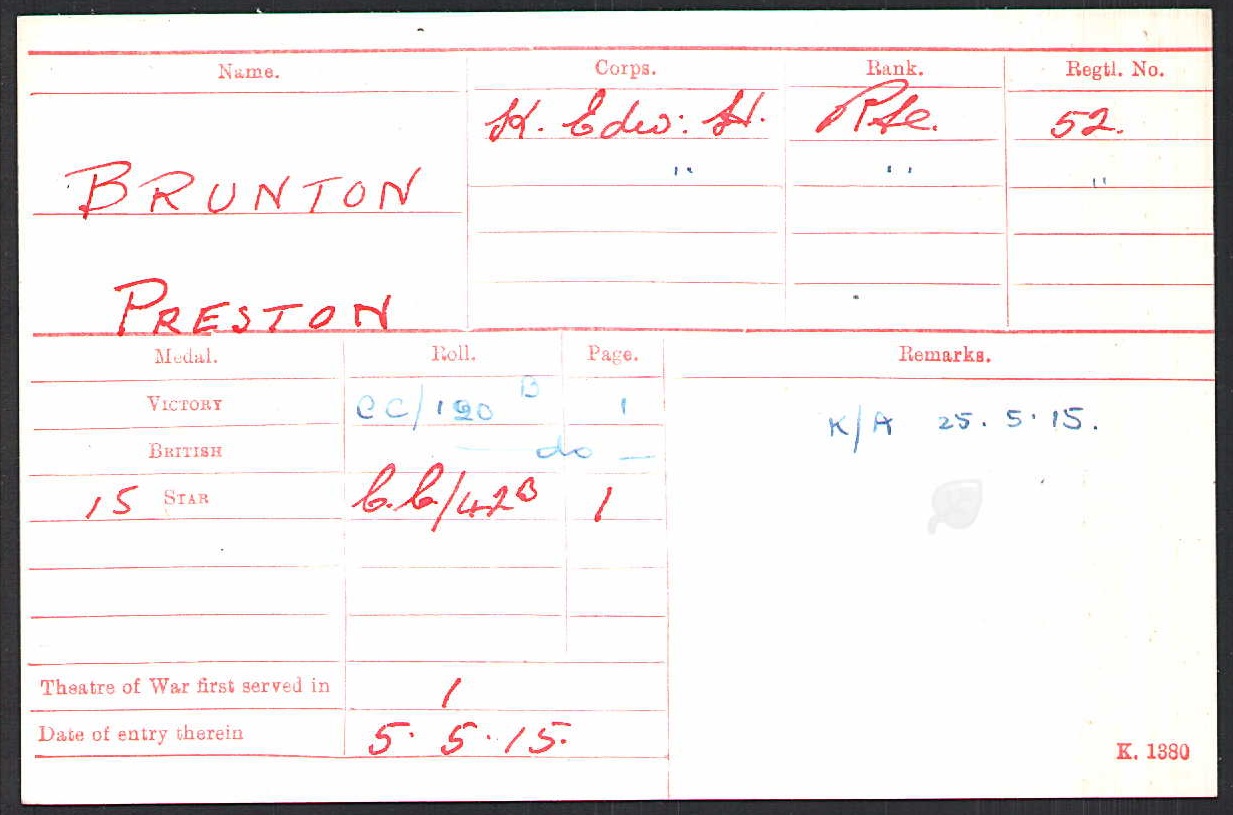 Name. Corps. Rank. Regtl. No.
K. Edw: H. Pte. 52.
BRUNTON " " "
PRESTON
Medal. Roll. Page. Remarks.
VICTORY CC/120 B 1 K/A 25.5.15.
BRITISH — do —
15 STAR C.C/42B 1
Theatre of War first served in 1
Date of entry therein 5.5.15.
K. 1380